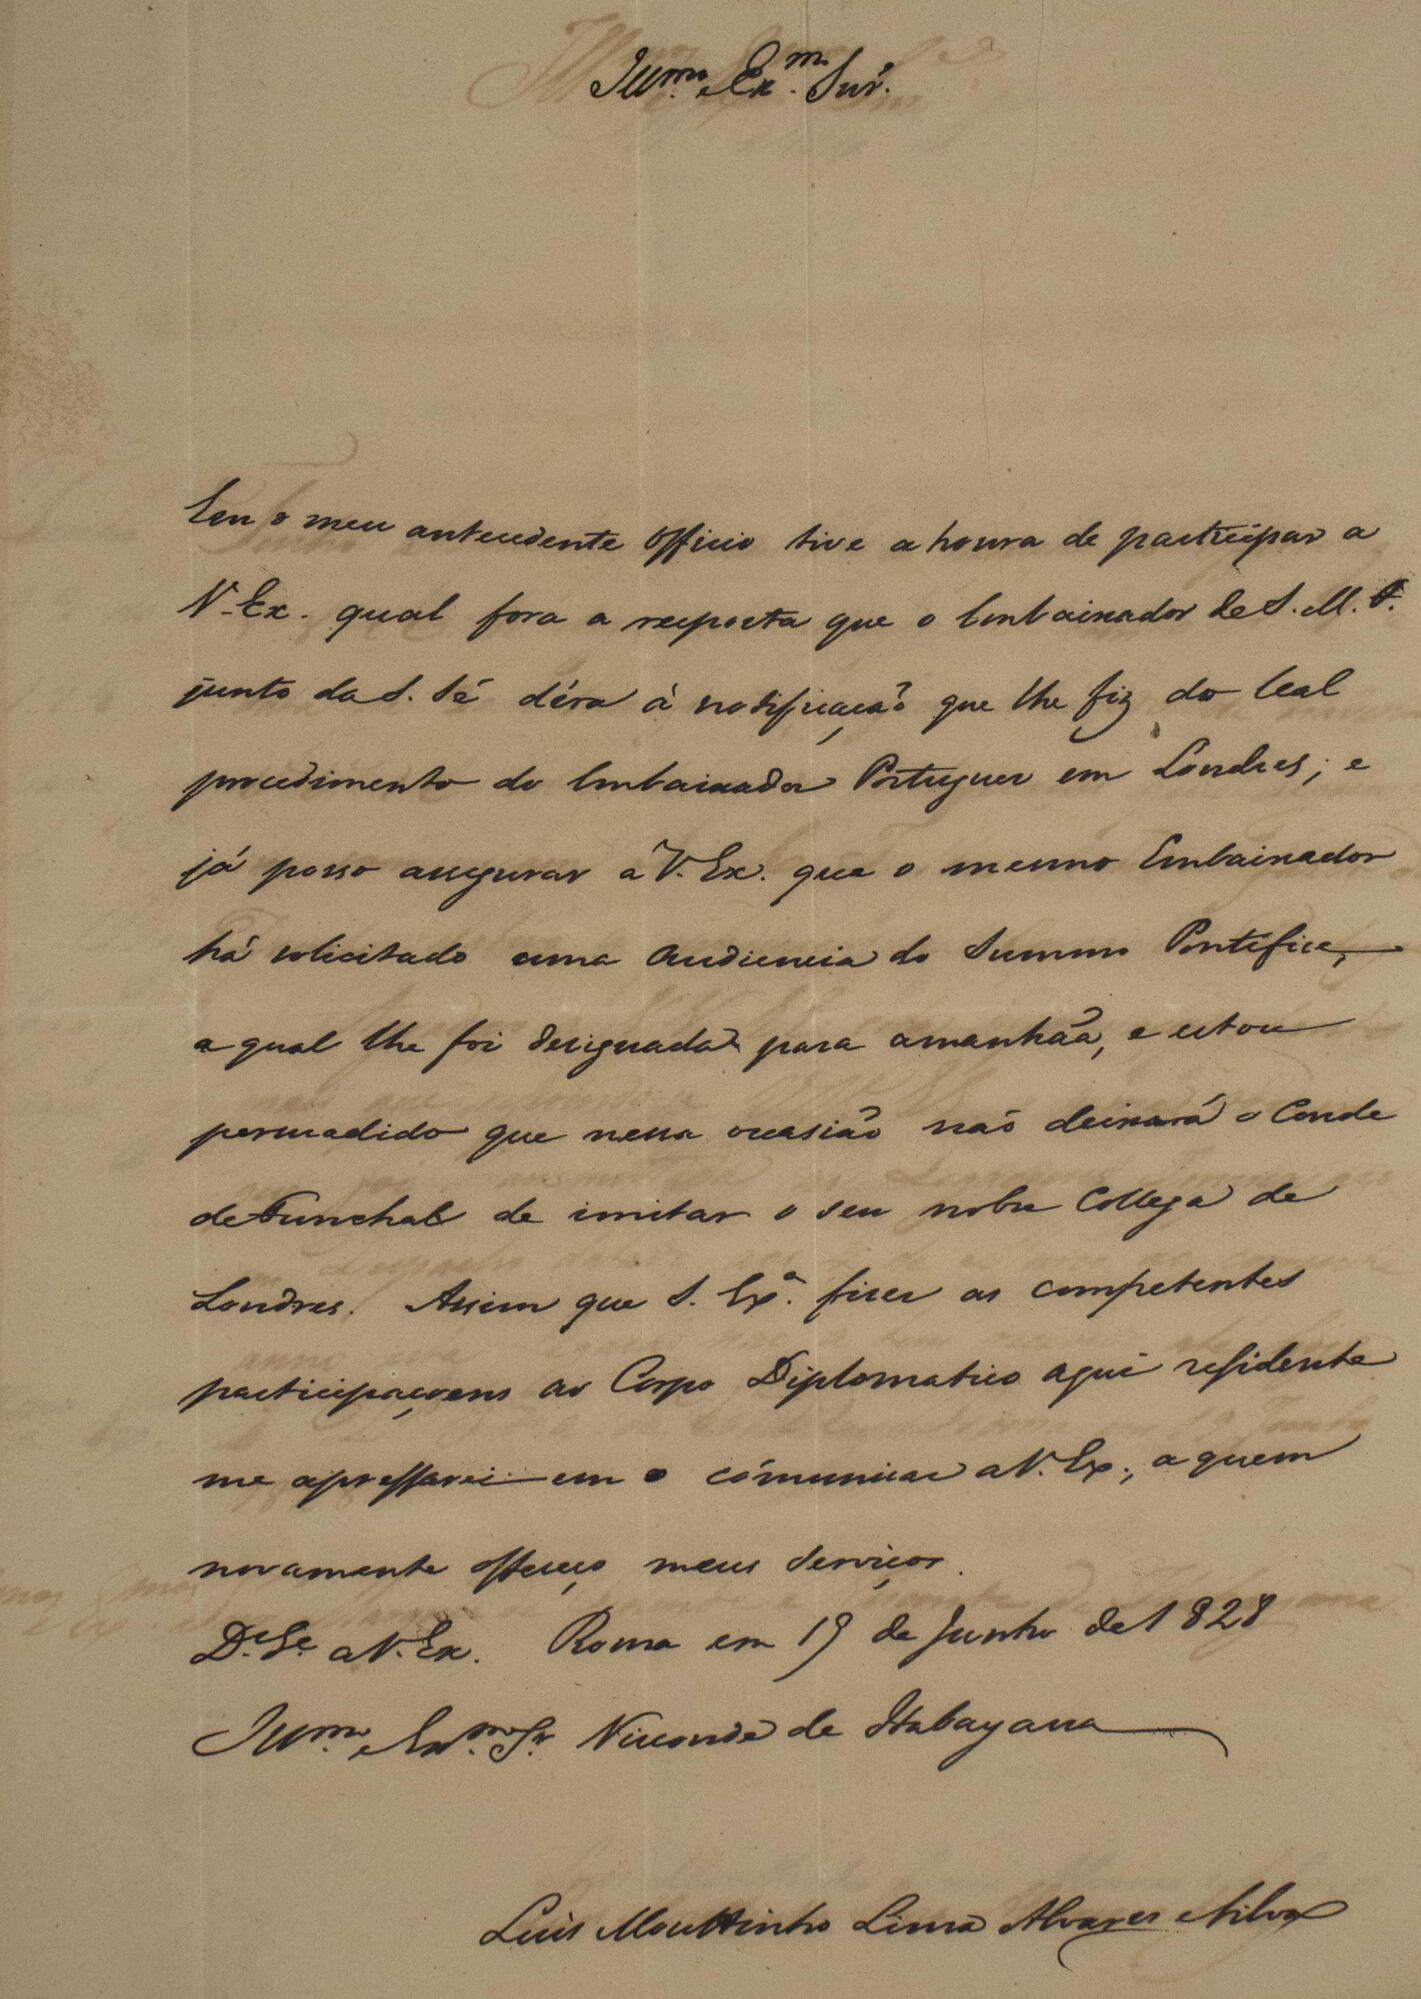 Illmo. e Exm. Snr.
Em o meu antecedente officio tive a honra de participar a
V. Ex. qual fora a resposta que o Embaixador de S. M. F.
junto da S. Sé déra á notificação que lhe fiz do leal
procedimento do Embaixador Portuguez em Londres; e
já posso assegurar a V. Ex. que o mesmo Embaixador
há solicitado uma Audiencia do Summo Pontifice,
a qual lhe foi designada para amanhãa, e estou
persuadido que nessa occasião não deixará o Conde
de Funchal de imitar o seu nobre Collega de
Londres. Assim que S. Exa. fizer as competentes
participaçoens ao Corpo Diplomatico aqui residente
me apressarei em o cómunicar a V. Ex., a quem
novamente offereço meus serviços.
De. Ge. a V. Ex. Roma em 19 de Junho de 1828
Illmo. e Exmo. Sr. Visconde de Itabayana
Luis Mouttinho Lima Alvares e Silva